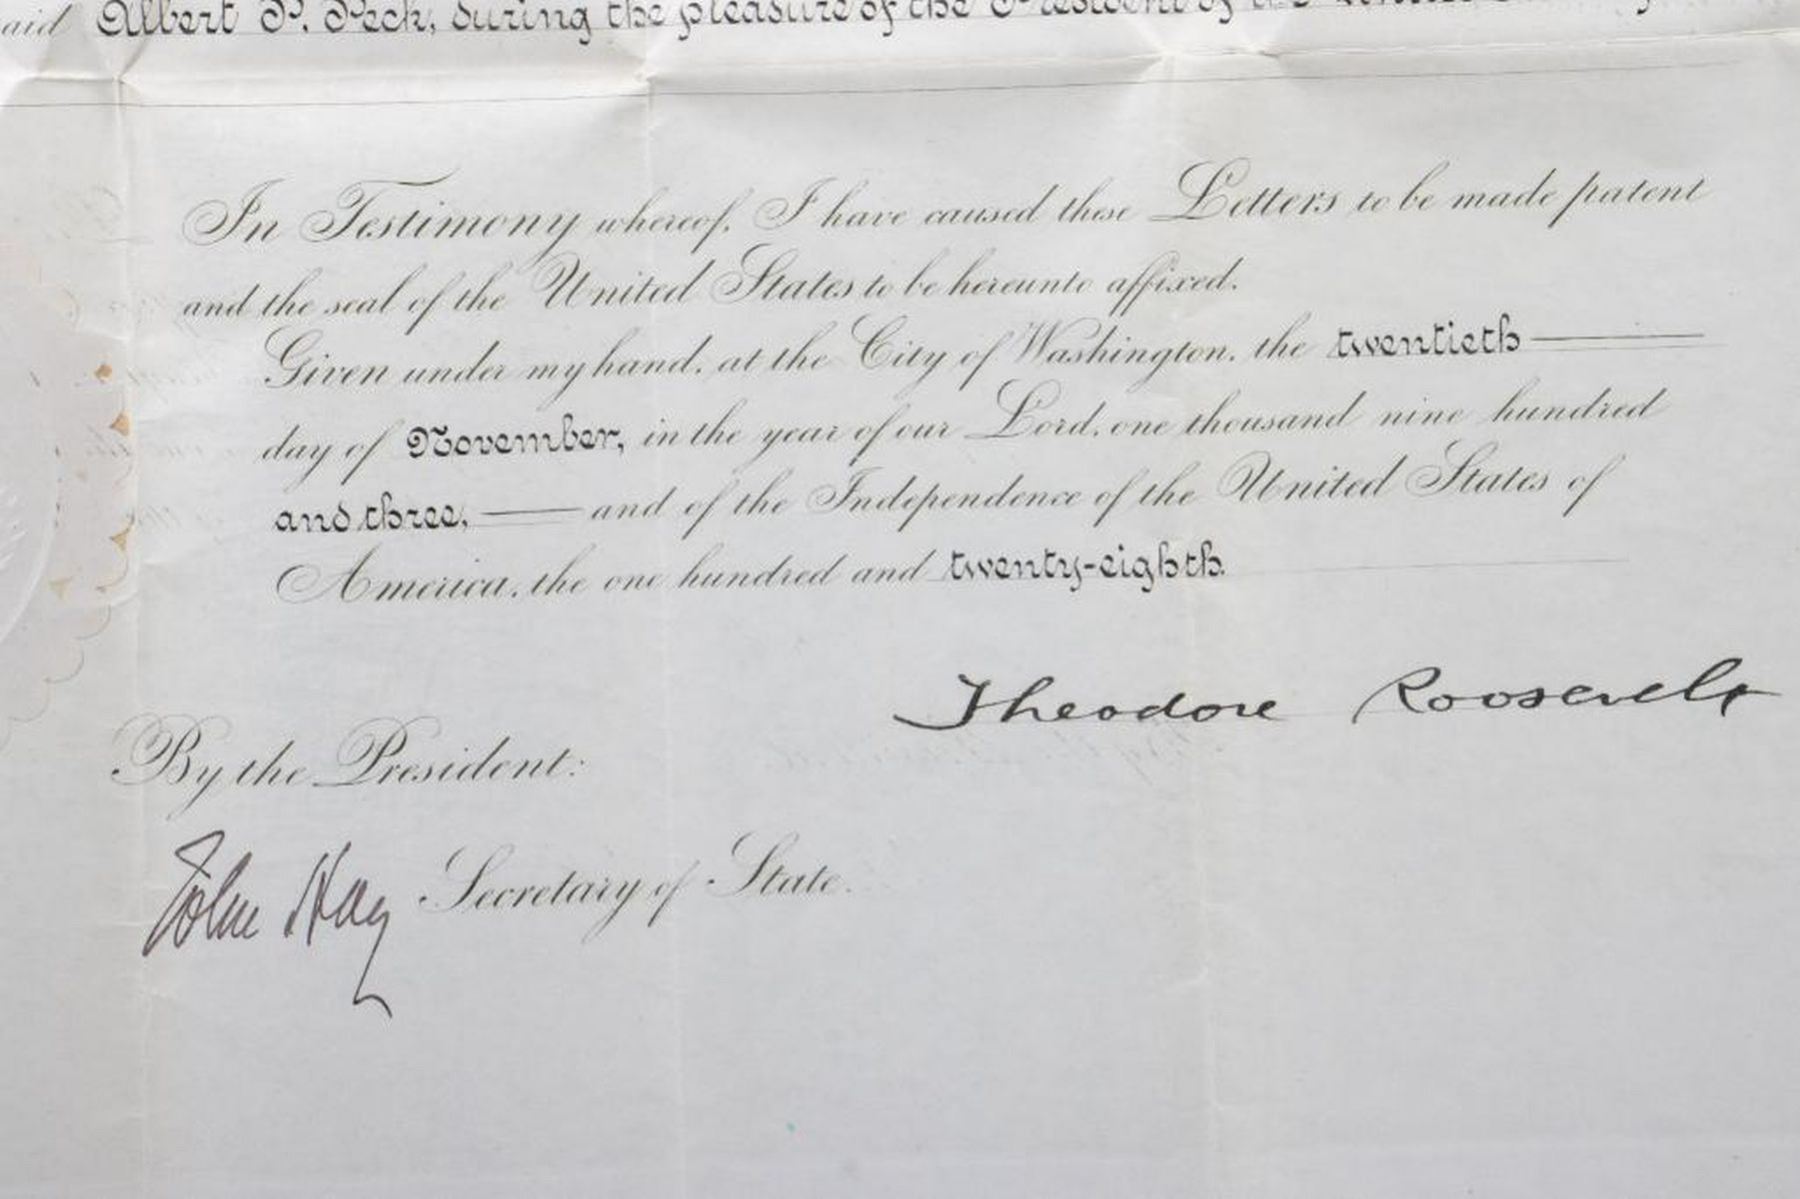 aid Albert P. Peck, during the pleasure of the President of the United
In Testimony whereof, I have caused these Letters to be made patent
and the seal of the United States to be hereunto affixed.
Given under my hand, at the City of Washington, the twentieth
day of November, in the year of our Lord, one thousand nine hundred
and three, and of the Independence of the United States of
America, the one hundred and twenty-eighth.
Theodore Roosevelt
By the President:
John Hay Secretary of State.